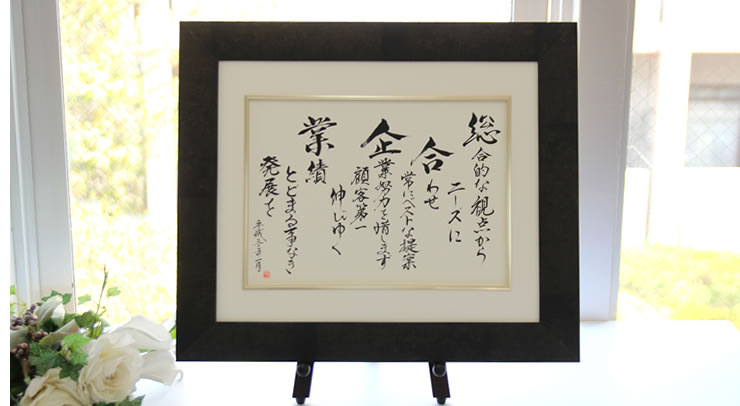 総合的な観点から
ニーズに
合わせ
常にベストな提案
企業努力を惜します
顧客第一
業績伸びゆく
とどまる事なき
発展を